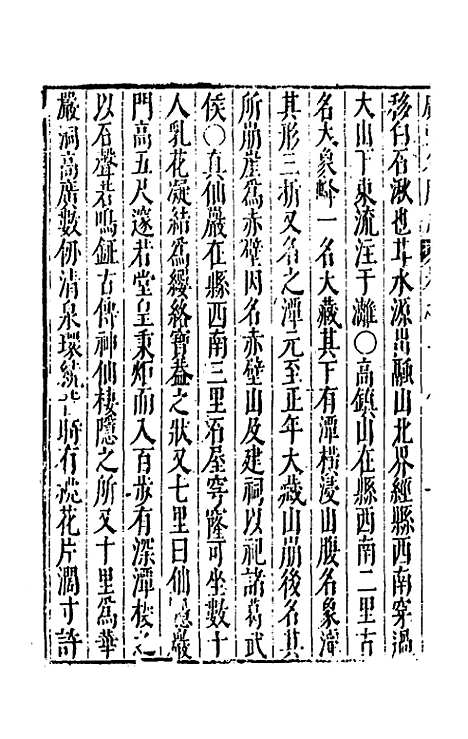 移白石湫也其水源出融山北界經縣西南穿過
大山下東流注于灕○高鎮山在縣西南二里古
名大象嶺一名大藏其下有潭横浸山腹名象潭
其形三折又名之潭元至正年大藏山崩後名其
所崩崖爲赤壁因名赤壁山及建祠以祀諸葛武
侯○真仙巖在縣西南三里石屋穹隆可坐數十
人乳花凝結爲纓絡寶蓋之狀又七里曰仙隱巖
門高五尺邃若堂皇秉炬而入百步有深潭投之
以石聲若鳴鉦古傳神仙棲隱之所又十里爲華
嚴洞高廣數仞清泉環繞 時有桃花片濶寸許